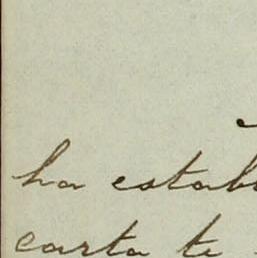 ha estab
carta te